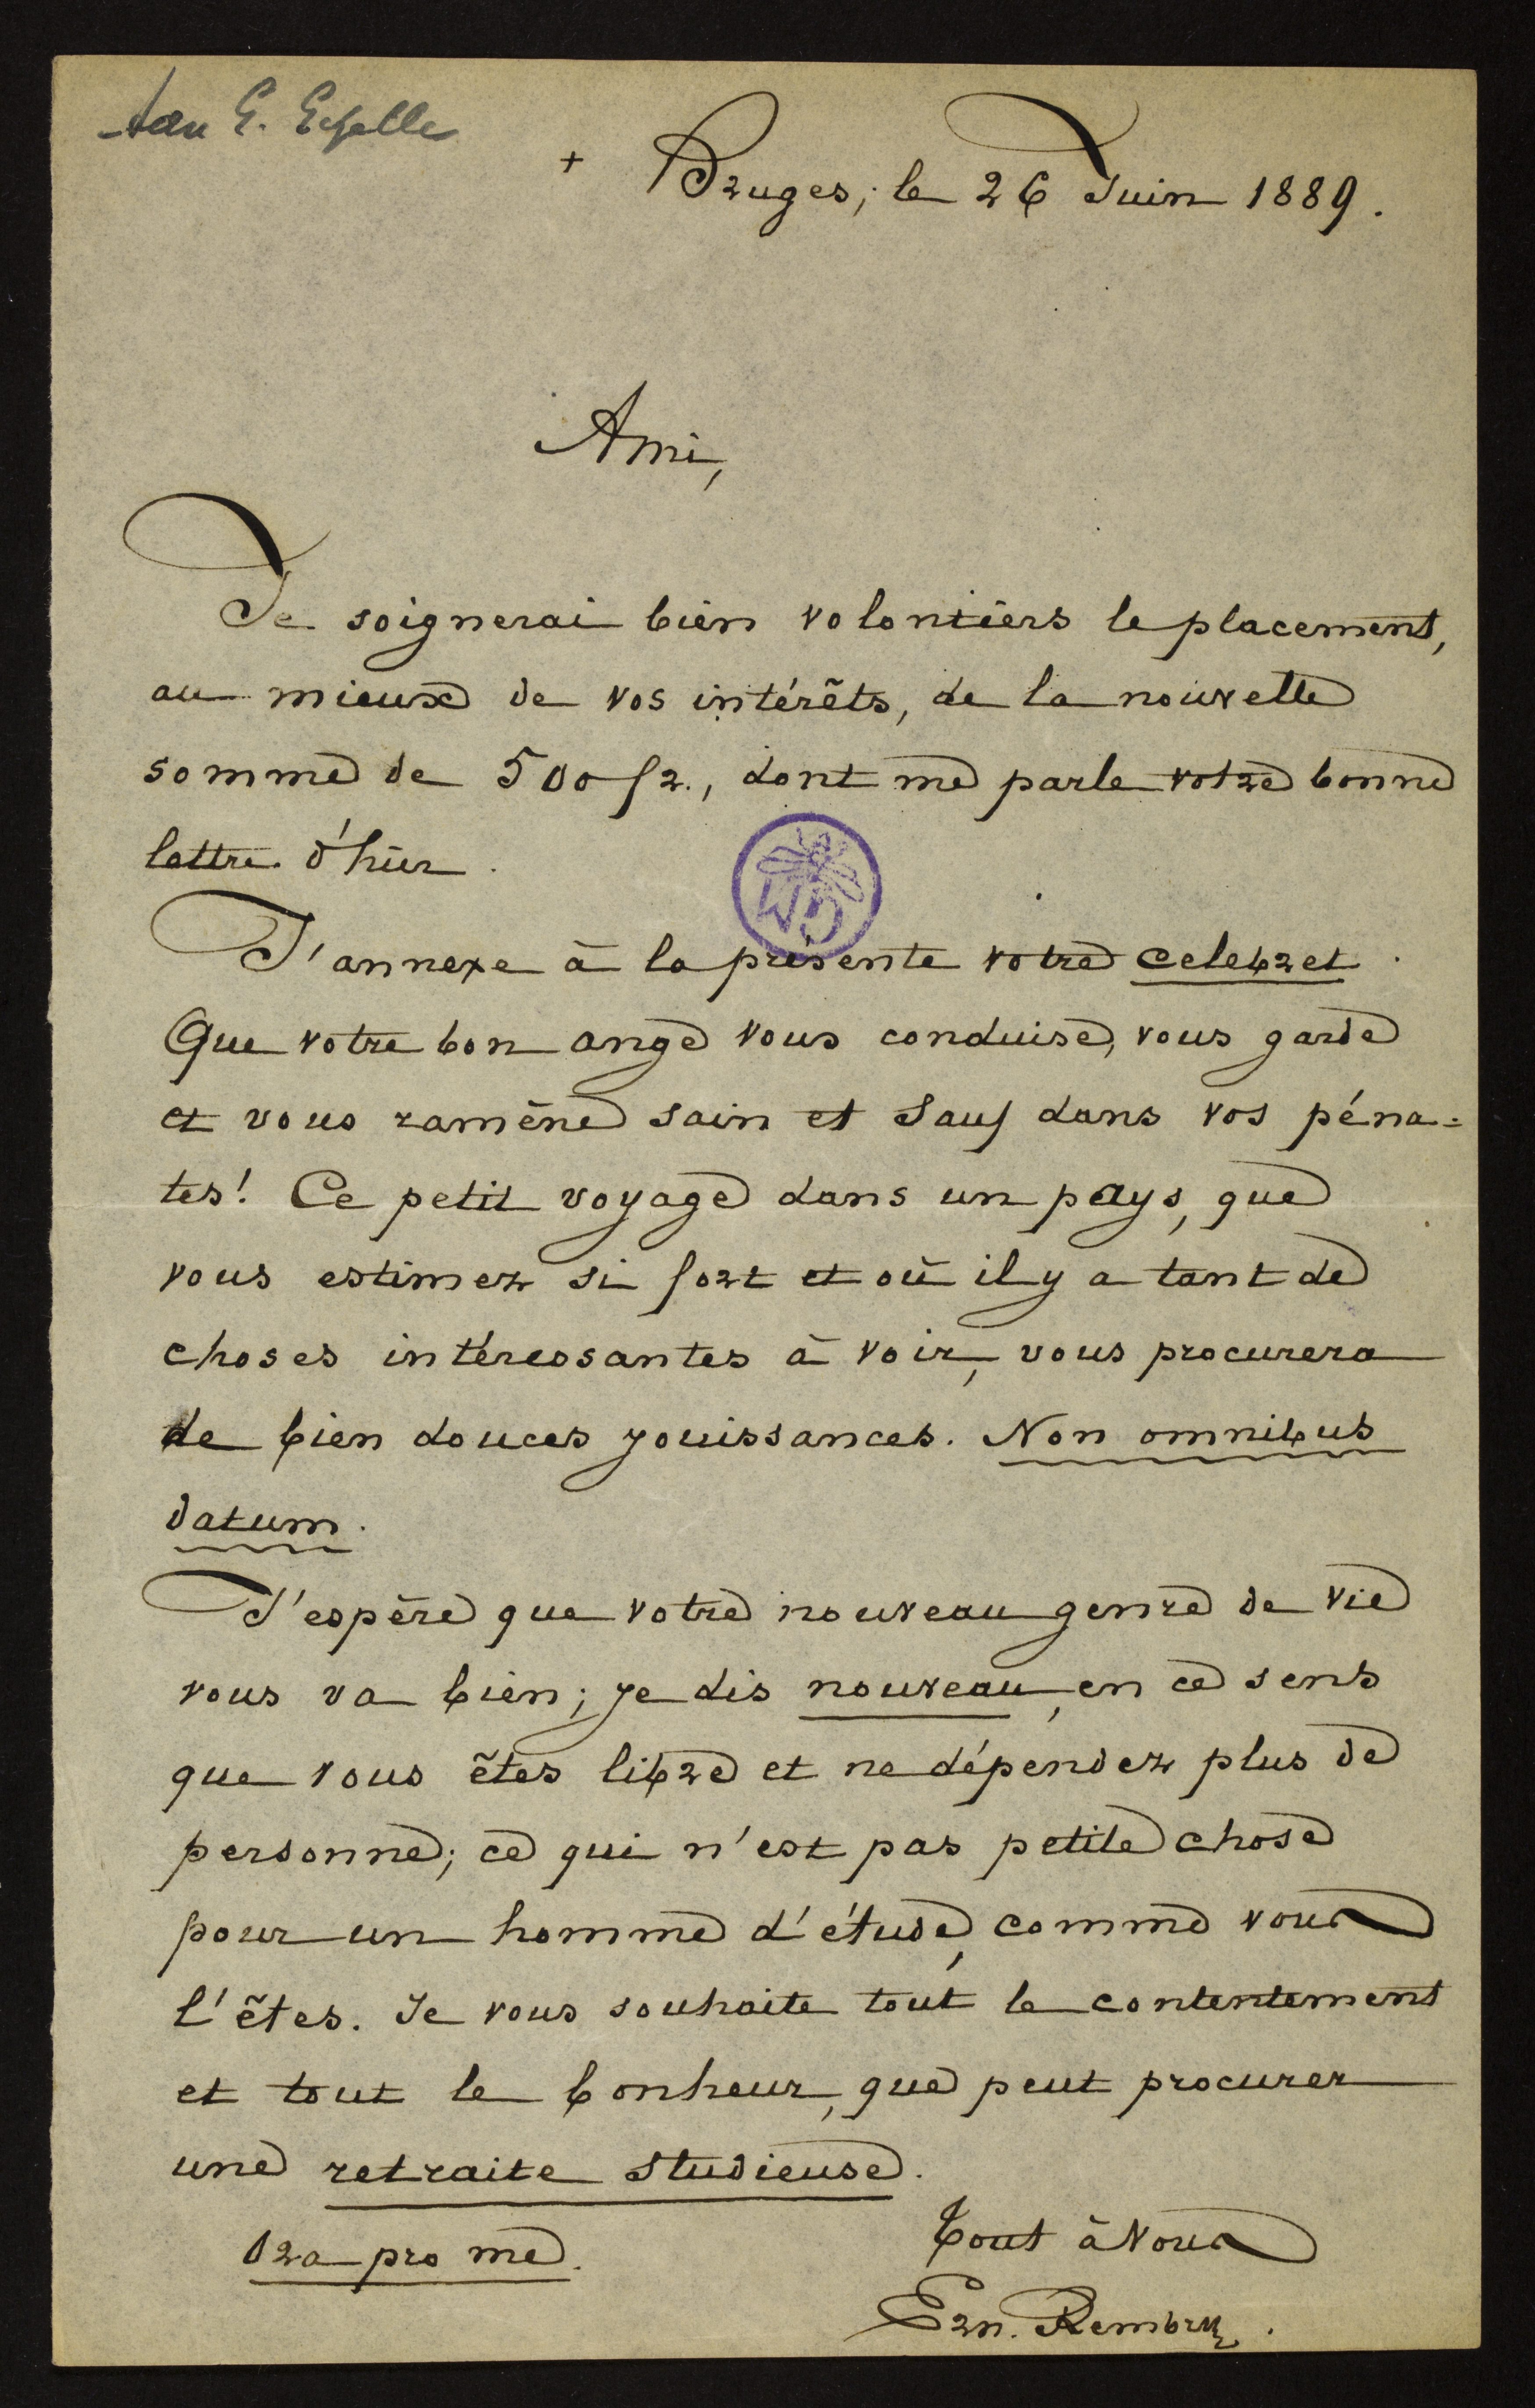 Aan G. Gezelle
+ Bruges, le 26 Juin 1889.
Ami,
Je soignerai bien volontiers le placement,
au mieux de vos intérêts, de la nouvelle
somme de 500 fr., dont me parle votre bonne
lettre d'hier.
J'annexe à la présente votre celebret.
Que votre bon ange vous conduise, vous garde
et vous ramène sain et sauf dans vos péna=
tes! Ce petit voyage dans un pays, que
vous estimez si fort et où il y a tant de
choses intéressantes à voir, vous procurera
de bien douces jouissances. Non omnibus
datum.
J'espère que votre nouveau genre de vie
vous va bien; je dis nouveau, en ce sens
que vous êtes libre et ne dépendez plus de
personne; ce qui n'est pas petite chose
pour un homme d'étude, comme vous
l'êtes. Je vous souhaite tout le contentement
et tout le bonheur, que peut procurer
une retraite studieuse.
Ora pro me.
Tout à Vous
Ern. Rembry.